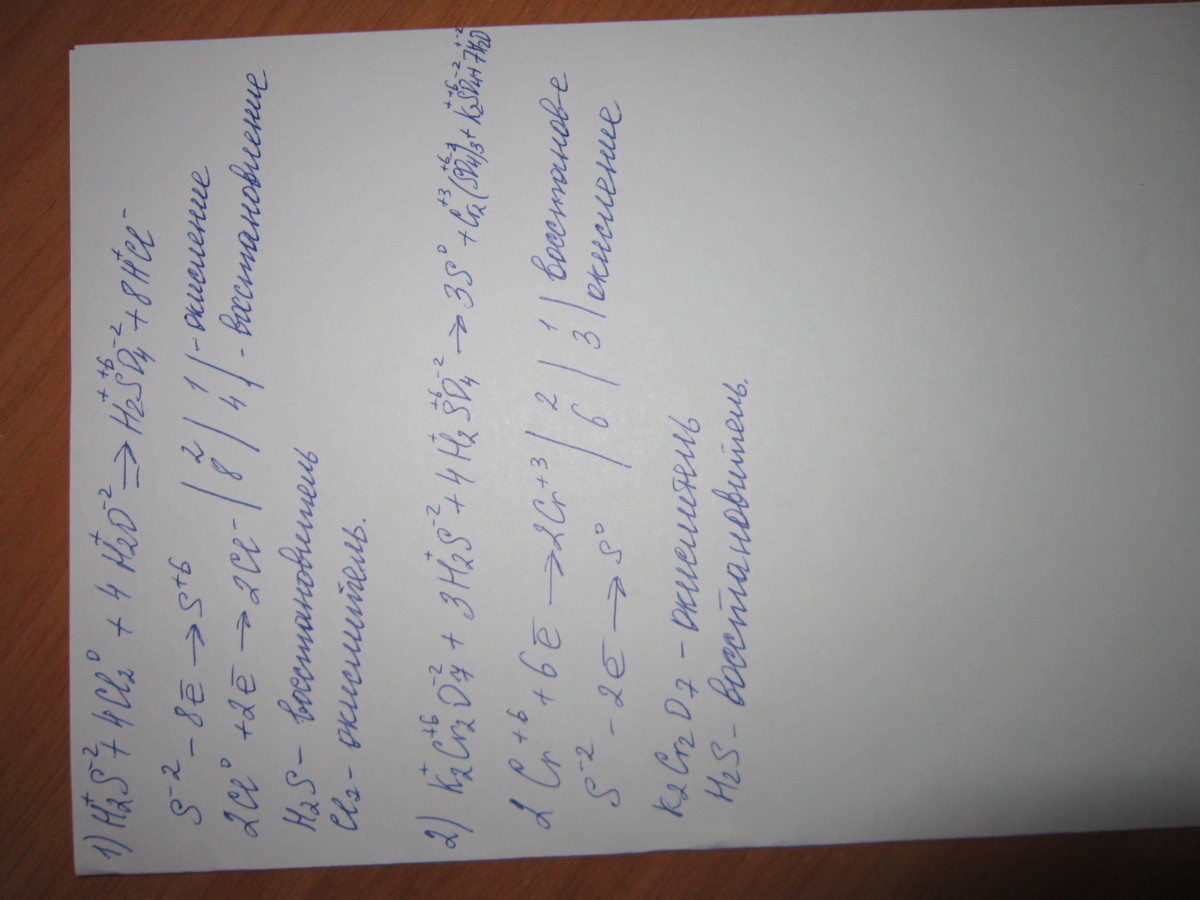 1) H₂⁺S⁻² + 4Cl₂⁰ + 4H₂⁺O⁻² ⇒ H₂⁺S⁺⁶O₄⁻² + 8H⁺Cl⁻
S⁻² – 8ē → S⁺⁶ | 2 | 1 | - окисление
2Cl⁰ + 2ē → 2Cl⁻ | 8 | 4 | - восстановление
H₂S – восстановитель
Cl₂ – окислитель.
2) K₂⁺Cr₂⁺⁶O₇⁻² + 3H₂⁺S⁻² + 4H₂⁺S⁺⁶O₄⁻² → 3S⁰ + Cr₂⁺³(S⁺⁶O₄⁻²)₃ + K₂⁺S⁺⁶O₄⁻² + 7H₂⁺O⁻²
2Cr⁺⁶ + 6ē → 2Cr⁺³ | 2 | 1 | восстанове
S⁻² – 2ē → S⁰ | 6 | 3 | окисление
K₂Cr₂O₇ – окислитель
H₂S – восстановитель.